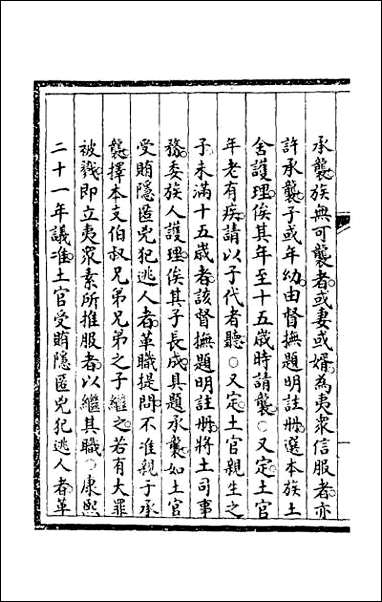 承襲族無可襲者或妻或婿為夷眾信服者亦
許承襲子或年幼由督撫題明註冊選本族土
舍護理俟其年至十五歲時請襲○又定土官
年老有疾請以子代者聽○又定土官親生之
子未滿十五歲者該督撫題明註冊將土司事
務委族人護理俟其子長成具題承襲如土官
受賄隱匿兇犯逃人者革職提問不准親子承
襲擇本支伯叔兄弟兄弟之子繼之若有大罪
被戮即立夷眾素所推服者以繼其職○康熙
二十一年議准土官受賄隱匿兇犯逃人者革